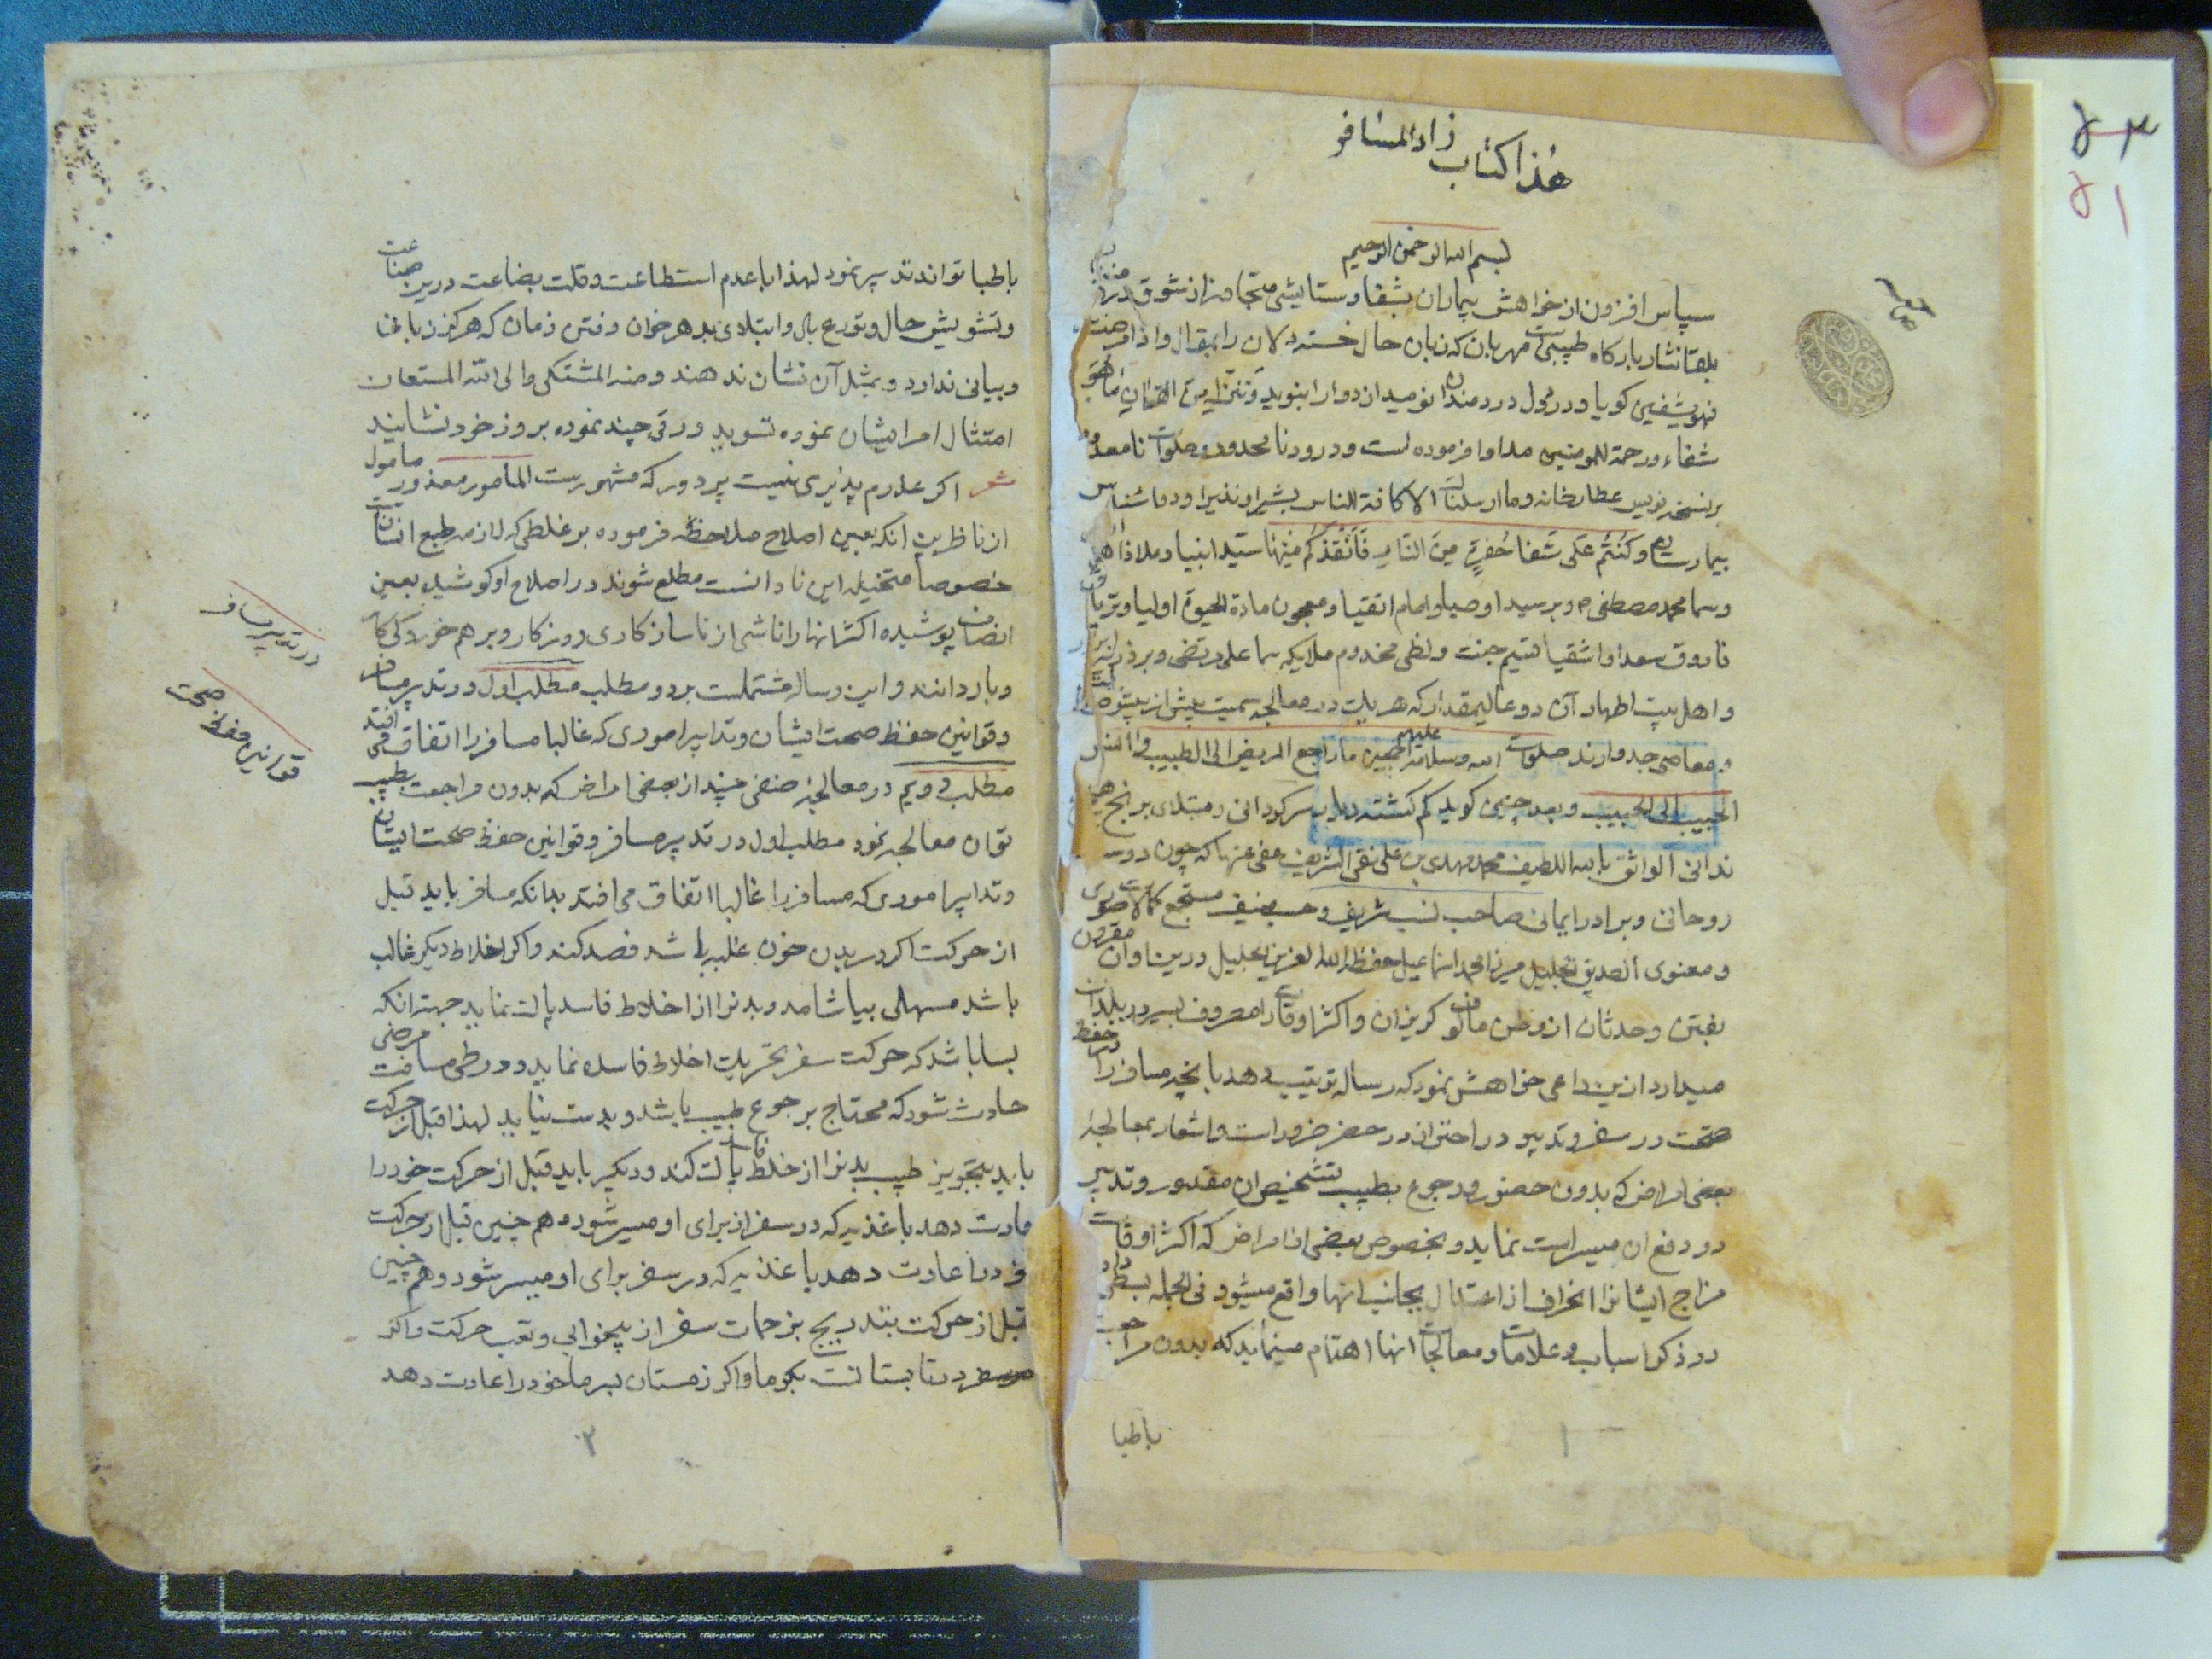 هذا کتاب زاد المسافر
بسم الله الرحمن الرحیم
سپاس افزون از خواهش بیماران بشفا و ستایشی متجاوز از شوق
بلقا نثار بارگاه طبیبی است مهربان که زبان حال خسته دلان را بمقال واذا مرضت
فهو یشفین کویا و در محل دردمندان نومیدان دوا را بنوید و ننزل من القران ما هو
شفاء ورحمة للمومنین مداوا فرموده است و درود نامحدود و صلوات نامعدود
بر نسخه نویس عطارخانه وما ارسلناک الا کافة للناس بشیرا ونذیرا و دم شناس
بیمارستان وکنتم علی شفا حفرة من النار فانقذکم منها سید انبیا و ملاذ
وسما محمد مصطفی ص و بر سید اوصیا و امام اتقیا و معجون مادة الحیوة اولیا و تریاق
فاروق سعدا و اشقیا قسیم جنت ولظی مخدوم ملایکه سما علی مرتضی و بر ذریه
و اهل بیت اطهار آن دو عالیمقدار که هریک در معالجه سمیت بیش از بیش
معاصی جدوارند صلوات الله وسلامه علیهم اجمعین ما راجع المریض الی الطبیب و انس
الحبیب الی الحبیب و بعد چنین کوید کم کشته دیار سرکردانی و مبتلای برنج هیچ
ندانی الواثق بالله اللطیف محمد مهدی بن علی نقی الشریف عفی عنهما که چون دوست
روحانی و برادر ایمانی صاحب نسب شریف و حسب منیف مستجمع کمالات صوری
و معنوی الصدیق الجلیل میرزا محمد اسماعیل حفظه الله العزیز الجلیل درین اوان مقرون
بفتن و حدثان از وطن مالوف کریزان و اکثر اوقات را مصروف بسیر و بلدان
میدارد ازین داعی خواهش نمود که رساله ترتیب دهد بانچه مسافر را در حفظ
صحت در سفر و تدبیر و احتراز در حضر ضرور است و اشعار بمعالجه
بعضی امراض که بدون حضور و رجوع بطبیب تشخیص ان مقدور و تدبیر
در دفع ان میسر است نماید و بخصوص بعضی از امراض که اکثر اوقات
مزاج ایشانرا انحراف از اعتدال بجانب انها واقع میشود فی الجمله بسطی داد
در ذکر اسباب و علامات و معالجات انها اهتمام مینماید که بدون مراجعت
باطبا
باطبا تواند تدبیر نمود لهذا با عدم استطاعت و قلت بضاعت درین صناعت
و تشویش حال و توزع بال و ابتلای بدهر خوان و فتن زمان که هرکز زبانها
و بیانی ندارد و بمثل آن نشان ندهند و منه المشتکی والی الله المستعان
امتثال امر ایشان نموده تسوید ورقی چند نموده بروز خود نشانید
شعر اکر عذرم پذیری نیست پر دور که مشهورست المامور معذور مامول
از ناظرین انکه بعین اصلاح ملاحظه فرموده بر غلطی که لازمه طبع انسان است
خصوصا متخیله این نادانست مطلع شوند در اصلاح او کوشید بعین
انصاف پوشیده اکثر انها را ناشی از ناسازکاری روزکار و برهم خوردکی کار
و بار دانند و این رساله مشتملست بر دو مطلب مطلب اول در تدبیر مسافر
و قوانین حفظ صحت ایشان و تدابیر اموری که غالبا مسافر را اتفاق می افتد
مطلب دویم در معالجه صنفی چند از بعضی امراض که بدون مراجعت بطبیب
توان معالجه نمود مطلب اول در تدبیر مسافر و قوانین حفظ صحت ایشان
و تدابیر اموری که مسافر را غالبا اتفاق می افتد بدانکه مسافر باید قبل
از حرکت اکر در بدن خون غلبه باشد فصد کند و اکر اخلاط دیکر غالب
باشد مسهلی بیاشامد و بدنرا از اخلاط فاسد پاک نماید جهة انکه
بسا باشد که حرکت سفر تحریک اخلاط فاسده نماید و در طی مسافت مرضی
حادث شود که محتاج برجوع طبیب باشد و بدست نیاید لهذا قبل از حرکت
باید بتجویز طبیب بدنرا از خلط فاسد پاک کند و دیکر باید قبل از حرکت خود را
عادت دهد باغذیه که در سفر از برای او میسر شود و هم چنین قبل از حرکت
خود را عادت دهد باغذیه که در سفر برای او میسر شود و هم چنین
قبل از حرکت بتدریج بزحمات سفر از بیخوابی و تعب حرکت و اکر
سفر در تابستانست بکرما و اکر زمستان بسرما خود را عادت دهد
در تدبیر مسافر
قوانین حفظ صحت
۲
۱